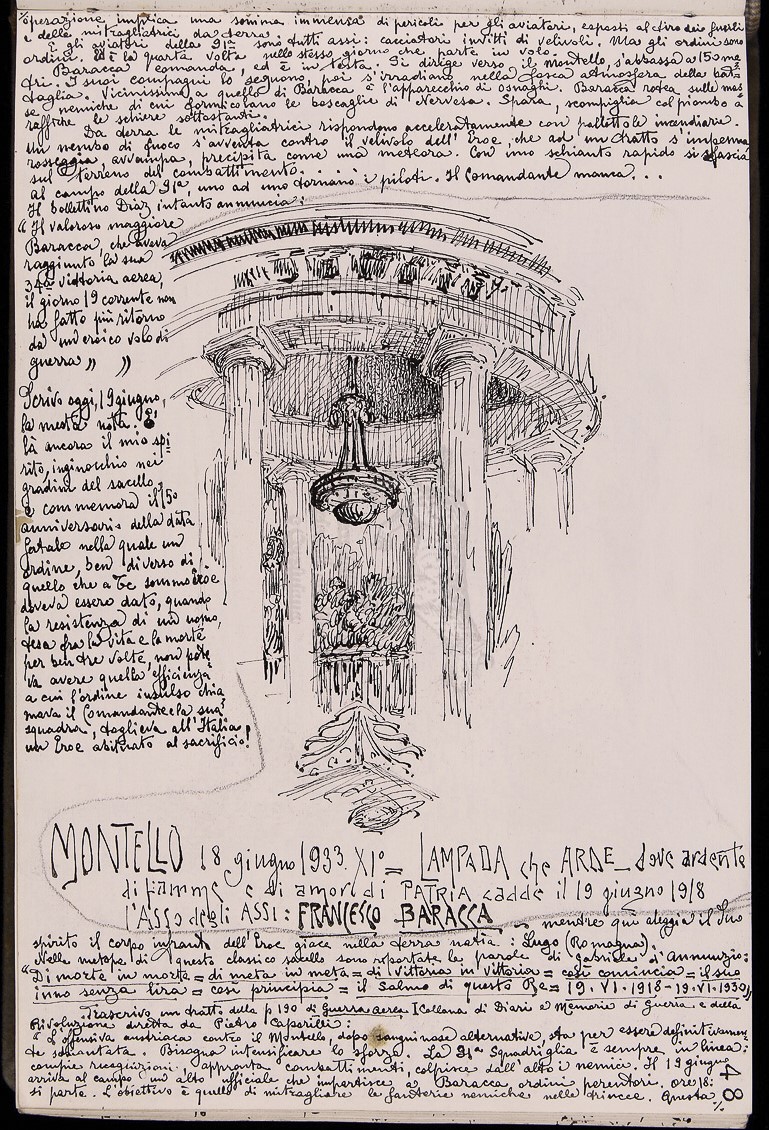 operazione implica una somma immensa di pericoli per gli aviatori, esposti al tiro dei fucili
e delle mitragliatrici da terra.
E gli aviatori della 91ª sono tutti assi: cacciatori invitti di velivoli. Ma gli ordini sono
ordini. Ed è la quarta volta nello stesso giorno che parte in volo.
Baracca è comandante ed è in testa. Si dirige verso il montello, s'abbassa a 150 me
tri. I suoi compagni lo seguono, poi s'irradiano nella fosca atmosfera della bat=
taglia. Vicinissimo a quello di Baracca è l'apparecchio di osnaghi. Baracca rotea sulle mas
se nemiche di cui formicolano le boscaglie di Nervesa. Spara, scompiglia col piombo a
raffiche le schiere sottostanti.
Da terra le mitragliatrici rispondono acceleratamente con pallottole incendiarie.
Un nembo di fuoco s'avventa contro il velivolo dell'Eroe, che ad un tratto s'impenna
rosseggia, avvampa, precipita come una meteora. Con uno schianto rapido si sfascia
sul terreno del combattimento.....
al campo della 91ª, uno ad uno tornano i piloti. Il Comandante manca...
Il bollettino Diaz intanto annuncia:
"Il valoroso maggiore
Baracca, che aveva
raggiunto la sua
34ª vittoria aerea,
il giorno 19 corrente non
ha fatto più ritorno
da un eroico volo di
guerra" "
Scrivo oggi, 19 giugno,
la mesta nota. È
là ancora il mio spi=
rito, inginocchio nei
gradini del sacello,
e commemora il 15º
anniversario della data
fatale nella quale un
ordine, ben diverso di
quello che a Te sommo Eroe
doveva essere dato, quando
la resistenza di un uomo,
tesa fra la vita e la morte
per ben tre volte, non pote=
va avere quella efficienza
a cui l'ordine insulso chia
mava il Comandante e la sua
squadra, toglieva all'Italia
un Eroe abituato al sacrificio!
MONTELLO 18 giugno 1933. XIº = LAMPADA che ARDE_ dove ardente
di fiamme e di amor di PATRIA cadde il 19 giugno 1918
l'Asso degli ASSI: FRANCESCO BARACCA _ mentre qui aleggia il Suo
spirito il corpo infranto dell'Eroe giace nella terra natia: Lugo (Romagna).
Nelle metope di questo classico sacello sono riportate le parole di Gabriele d'Annunzio:
"Di morte in morte = di meta in meta = di vittoria in vittoria = così comincia = il suo
inno senza lira = così principia = il Salmo di questo Re = 19.VI.1918-19.VI.1930"
Trascrivo un tratto della p 190 di Guerra aerea (Collana di Diari e Memorie di Guerra e della
Rivoluzione diretta da Pietro Caporilli:
"L'offensiva austriaca contro il Montello, dopo sanguinose alternative, sta per essere definitivamen
te schiantata. Bisogna intensificare lo sforzo. La 91ª Squadriglia è sempre in linea:
compie ricognizioni, appronta combattimenti, colpisce dall'alto i nemici. Il 19 giugno
arriva al campo un alto ufficiale che impartisce a Baracca ordini perentori. ore 18:
si parte. L'obiettivo è quello di mitragliare le fanterie nemiche nelle trincee. Questa %
48